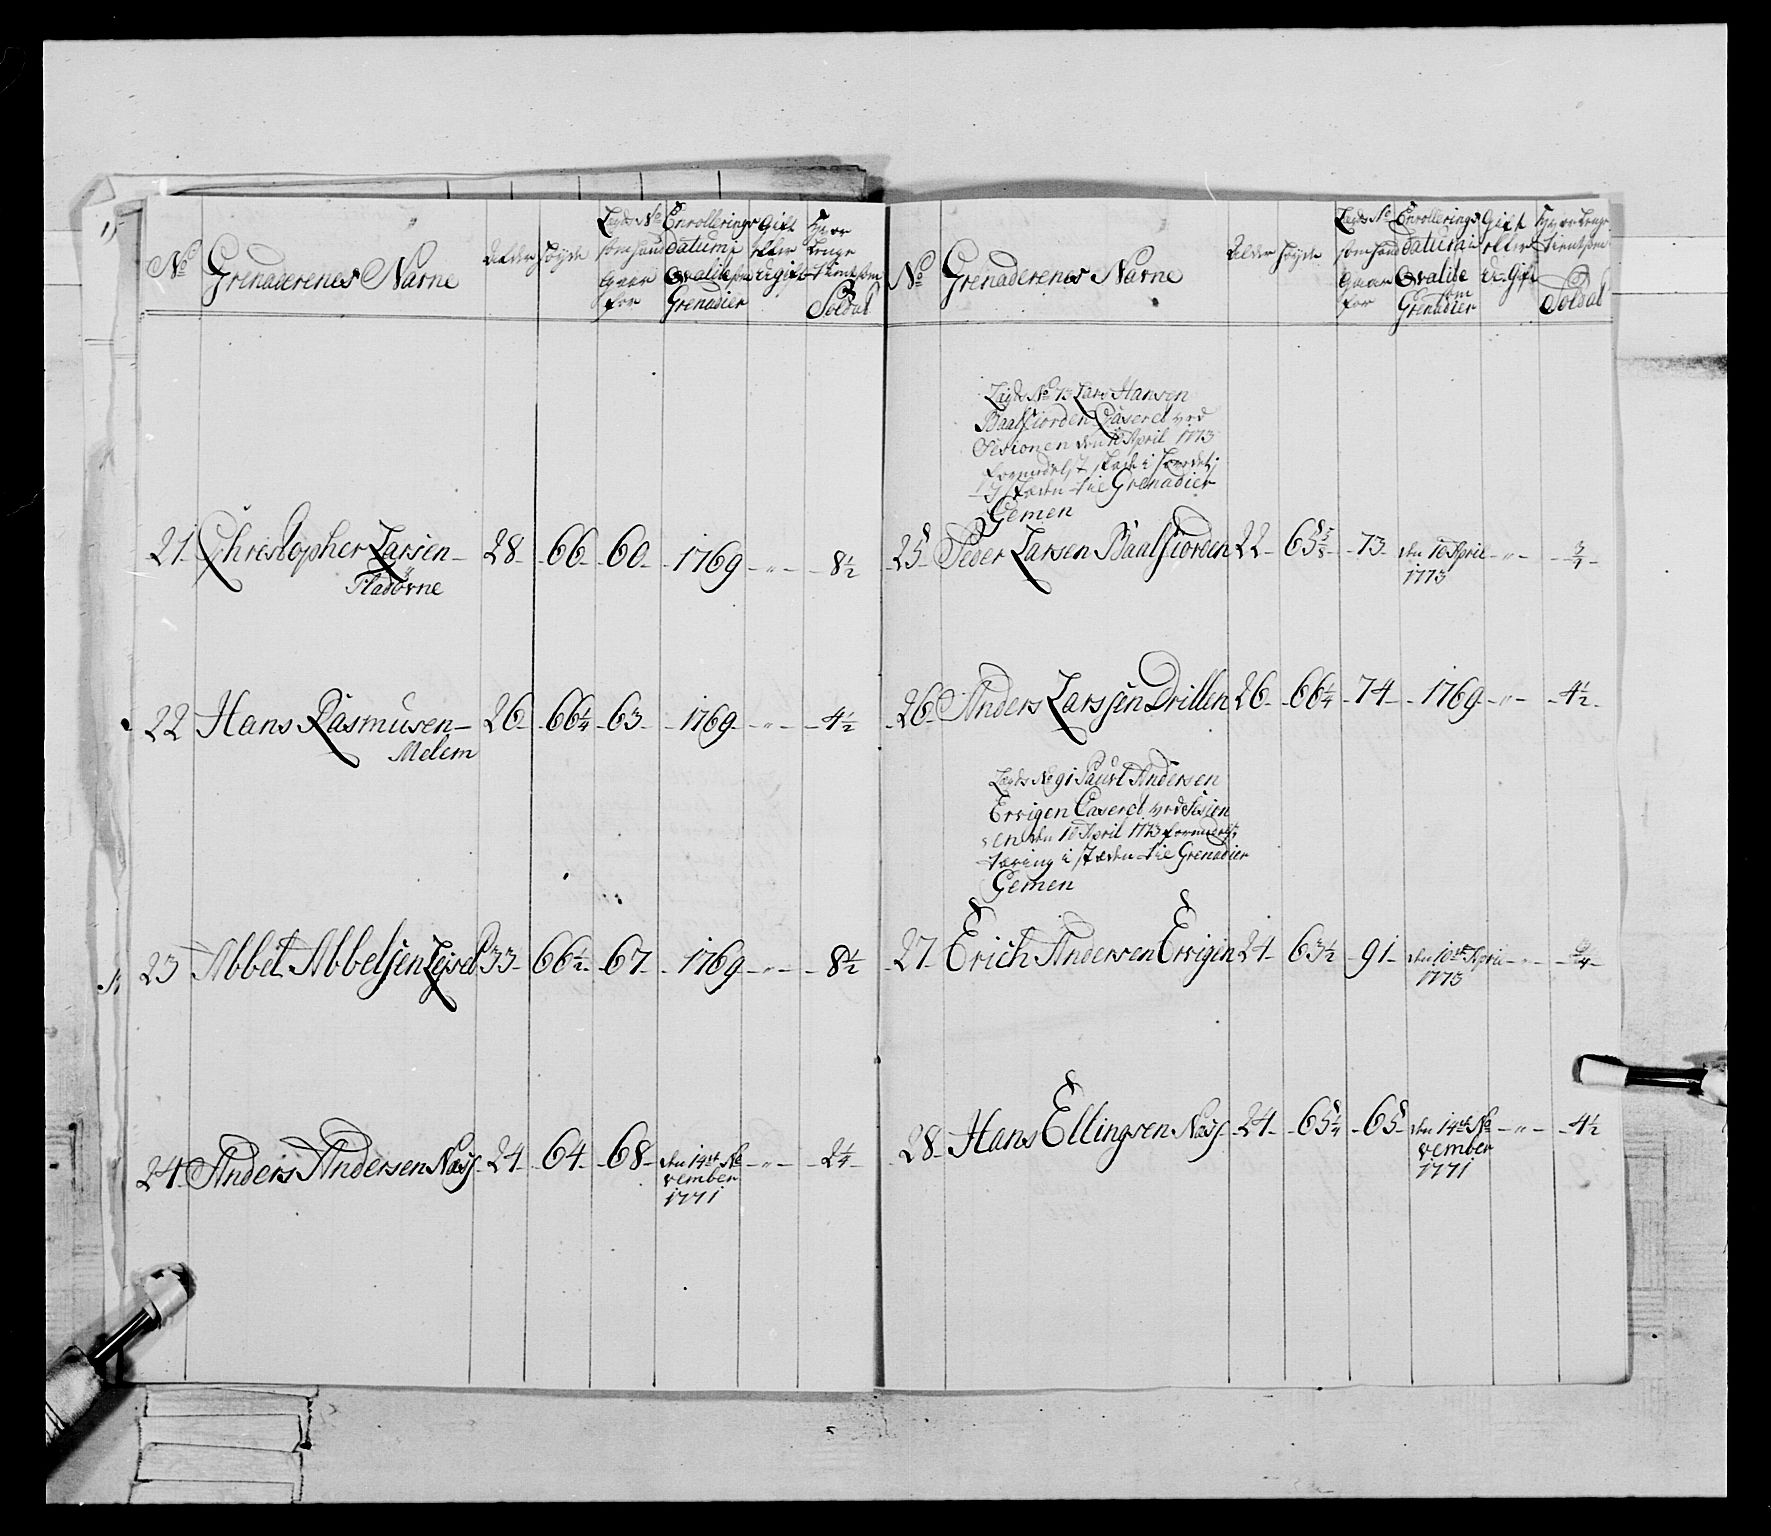 No Grenaderenes Navne Alder Høyde Lægds No som hand staar for Enrollerings datum i Qvalite som Grenadier Gift eller Ugift Hvor Længe tient som Soldat
21. Christopher Larsen 28. 66. 60. 1769 - " - 8 1/2
Fladørne
22 Hans Rasmusen 26. 66 1/4 63. 1769 - " - 4 1/2
Melem
23 Abbel Abbelsen Lejsed 33 66 1/2 67. 1769 - " - 8 1/2
24. Anders Andersen Næss 24 64 68 den 14de No - " - 2 1/4
vember
1771
No Grenaderenes Navne Alder Høyde Lægds No som hand staar for Enrollerings datum i Qvalite som Grenadier Gift eller U-Gift Hvor Længe tient som Soldat
Lægds No 73 Lars Hansen
Baalfiorden Caseret ved
Sesionen den 10 April 1773
formedelst skade i
i stæden til Grenadier
Gemen
25 Peder Larsen Baalfiorden 22 65 5/8 73 den 10 April - " - 3/4
1773
26. Anders Larssen Drillen 26 66 1/4 74 1769 - " - 4 1/2
Lægds No 91 Paul Andersen
Ervigen Caseret ved Sesion
en den 10 April 1773 formedelst
tæring i stæden til Grenadier
Gemen
27. Erich Andersen Ervigen 24 63 1/2 91 den 10de April - " - 3/4
1773
28. Hans Ellingsen Næss 24 65 1/4 65 den 14de No - " - 4 1/2
vember
1771